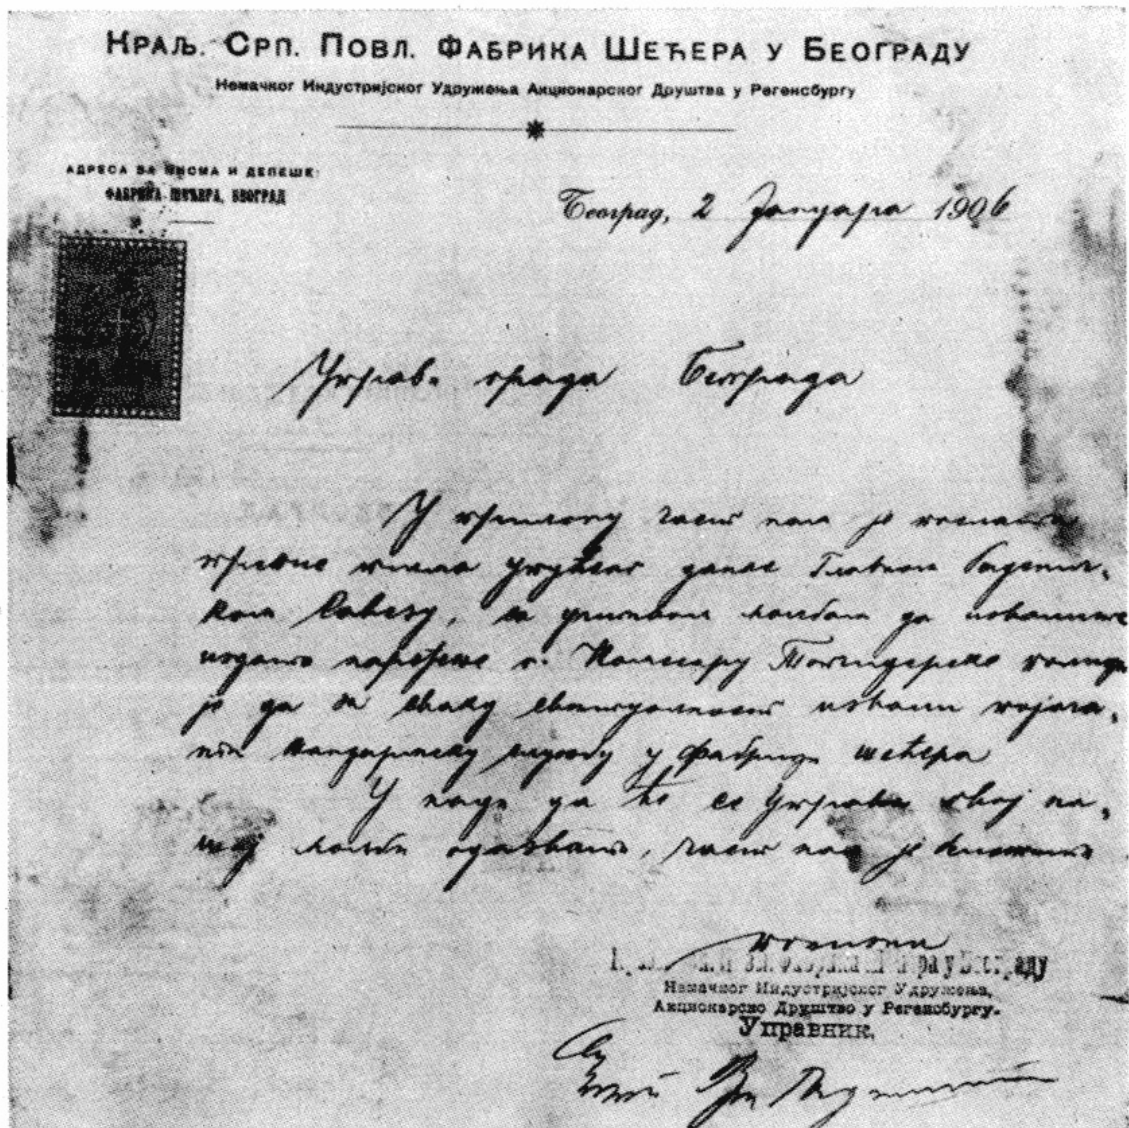 КРАЉ. СРП. ПОВЛ. ФАБРИКА ШЕЋЕРА У БЕОГРАДУ
Немачког Индустријског Удружења Акционарског Друштва у Регенсбургу
АДРЕСА ЗА ПИСМА И ДЕПЕШЕ:
ФАБРИКА ШЕЋЕРА, БЕОГРАД
Београд, 2 Јануара 1906
Управи града Београда
У прилогу част нам је послати
преписе писма упућеног данас Главном Раднич-
ком Савезу, са учтивом молбом да изволите
издати наређење г. Комесару Топчидерске
је да за сваку евентуалност изволи појача-
ти жандармску службу у фабрици шећера
У нади да ће се Управа овој на-
шој молби одазвати, част нам је бележити
Немачког Индустријског Удружења,
Акционарско Друштво у Регенсбургу.
Управник,